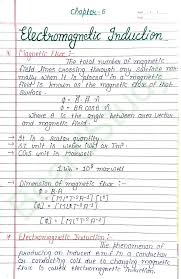 Chapter-6
Electromagnetic Induction
* Magnetic Flux :-
The total number of magnetic
field lines crossing through any surface nor-
mally when it is placed in a magnetic
field is known as the magnetic flux of that
Surface.
Φ = B.A
Φ = BA cosθ
Where θ is the angle between area vector
and magnetic field.
→ It is a scalar quantity
→ SI unit is weber (wb) or Tm²
→ CGS unit is Maxwell
1 Wb = 10⁸ maxwell
→ Dimension of magnetic flux :-
Φ = B.A
= [MT⁻²A⁻¹] [L²]
[Φ] = [ML²T⁻²A⁻¹]
* Electromagnetic Induction :-
The phenomenon of
producing an induced e.m.f in a conductor
or conducting coil due to changing magnetic
flux is called electromagnetic induction.